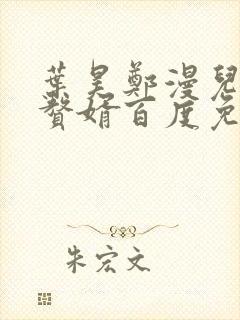 葉昊鄭漫兒
贅婿百度免
朱宏文